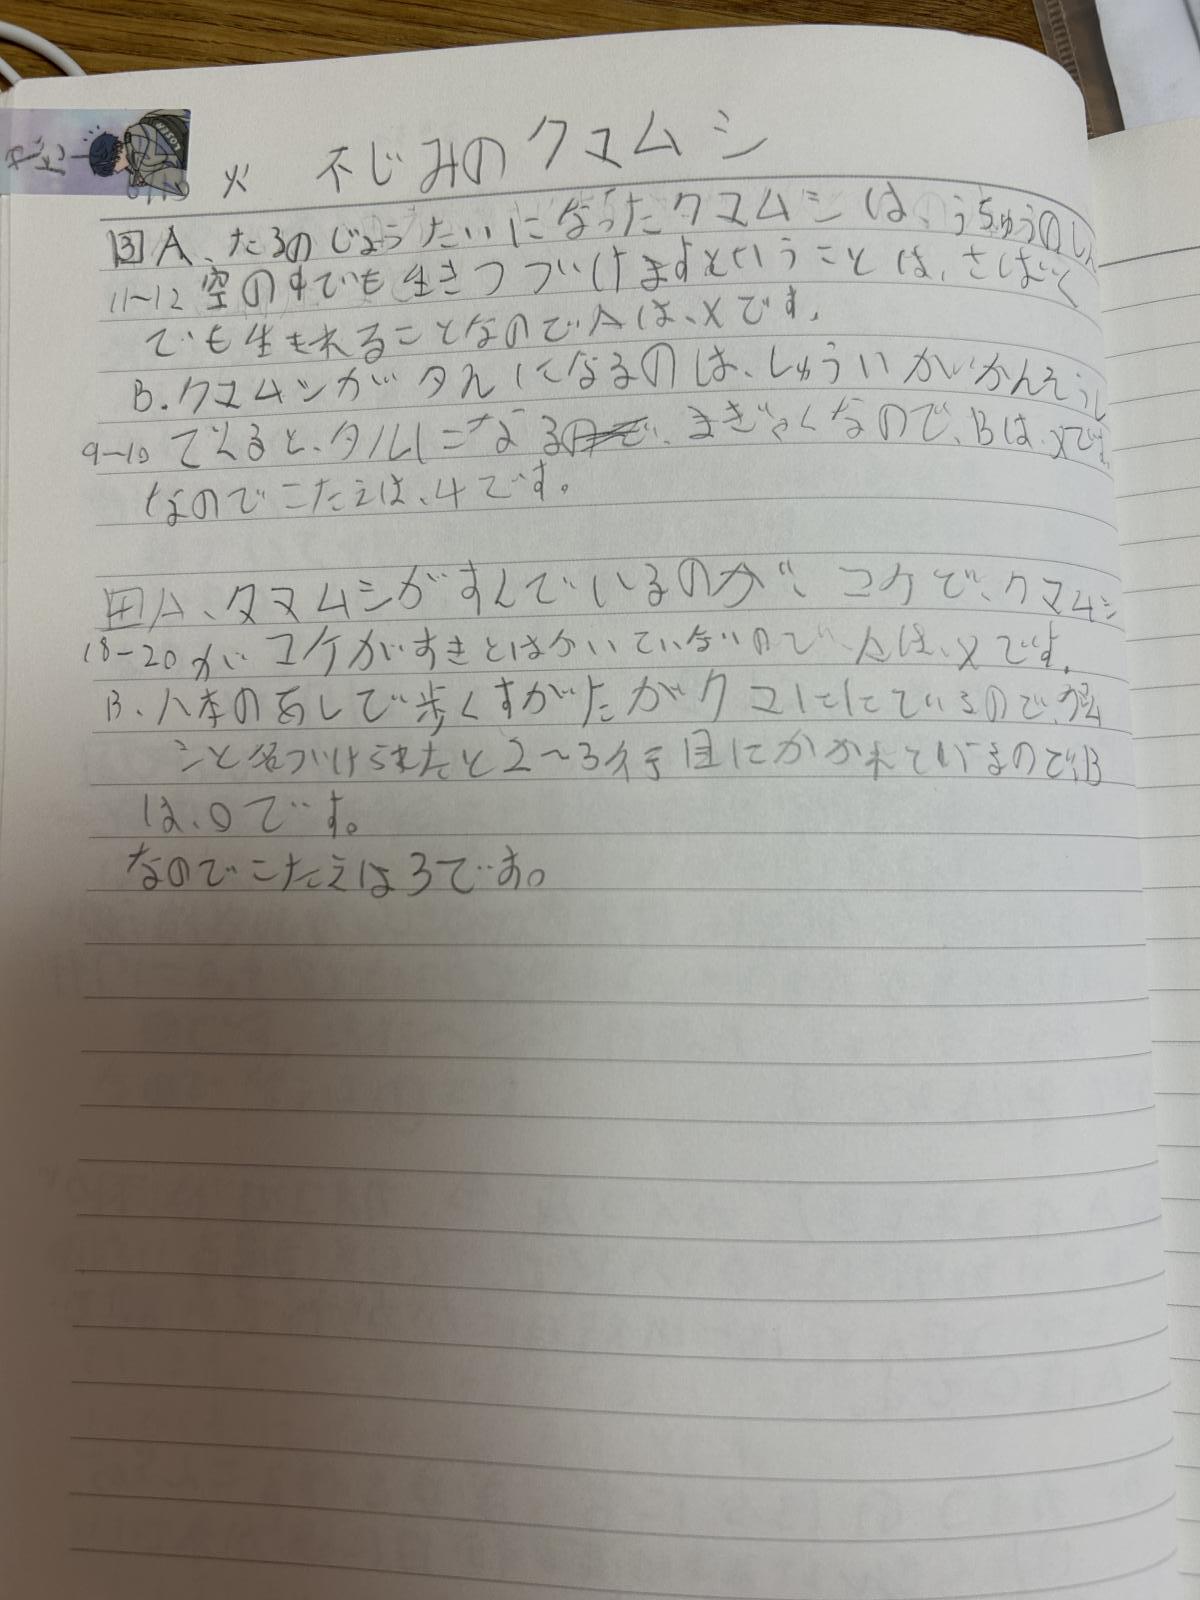 火 不じみのクマムシ
3 A、たるのじょうたいになったクマムシは、うちゅうのしん
11〜12 空の中でも生きつづけますということは、さばく
でも生きれることなのでAは、×です。
B.クマムシがタルになるのは、しゅういがかんそうし
9〜10 ていると、タルになる まぎゃくなので、Bは、×です
なのでこたえは、4です。
4 A、クマムシがすんでいるのが、コケで、クマムシ
18-20 がコケがすきとはかいていないので、Aは、×です。
B、八本のあしで歩くすがたがクマににているので、クマム
シと名づけられたと2〜3行目にかかれているのでB
は、○です。
なのでこたえは3です。